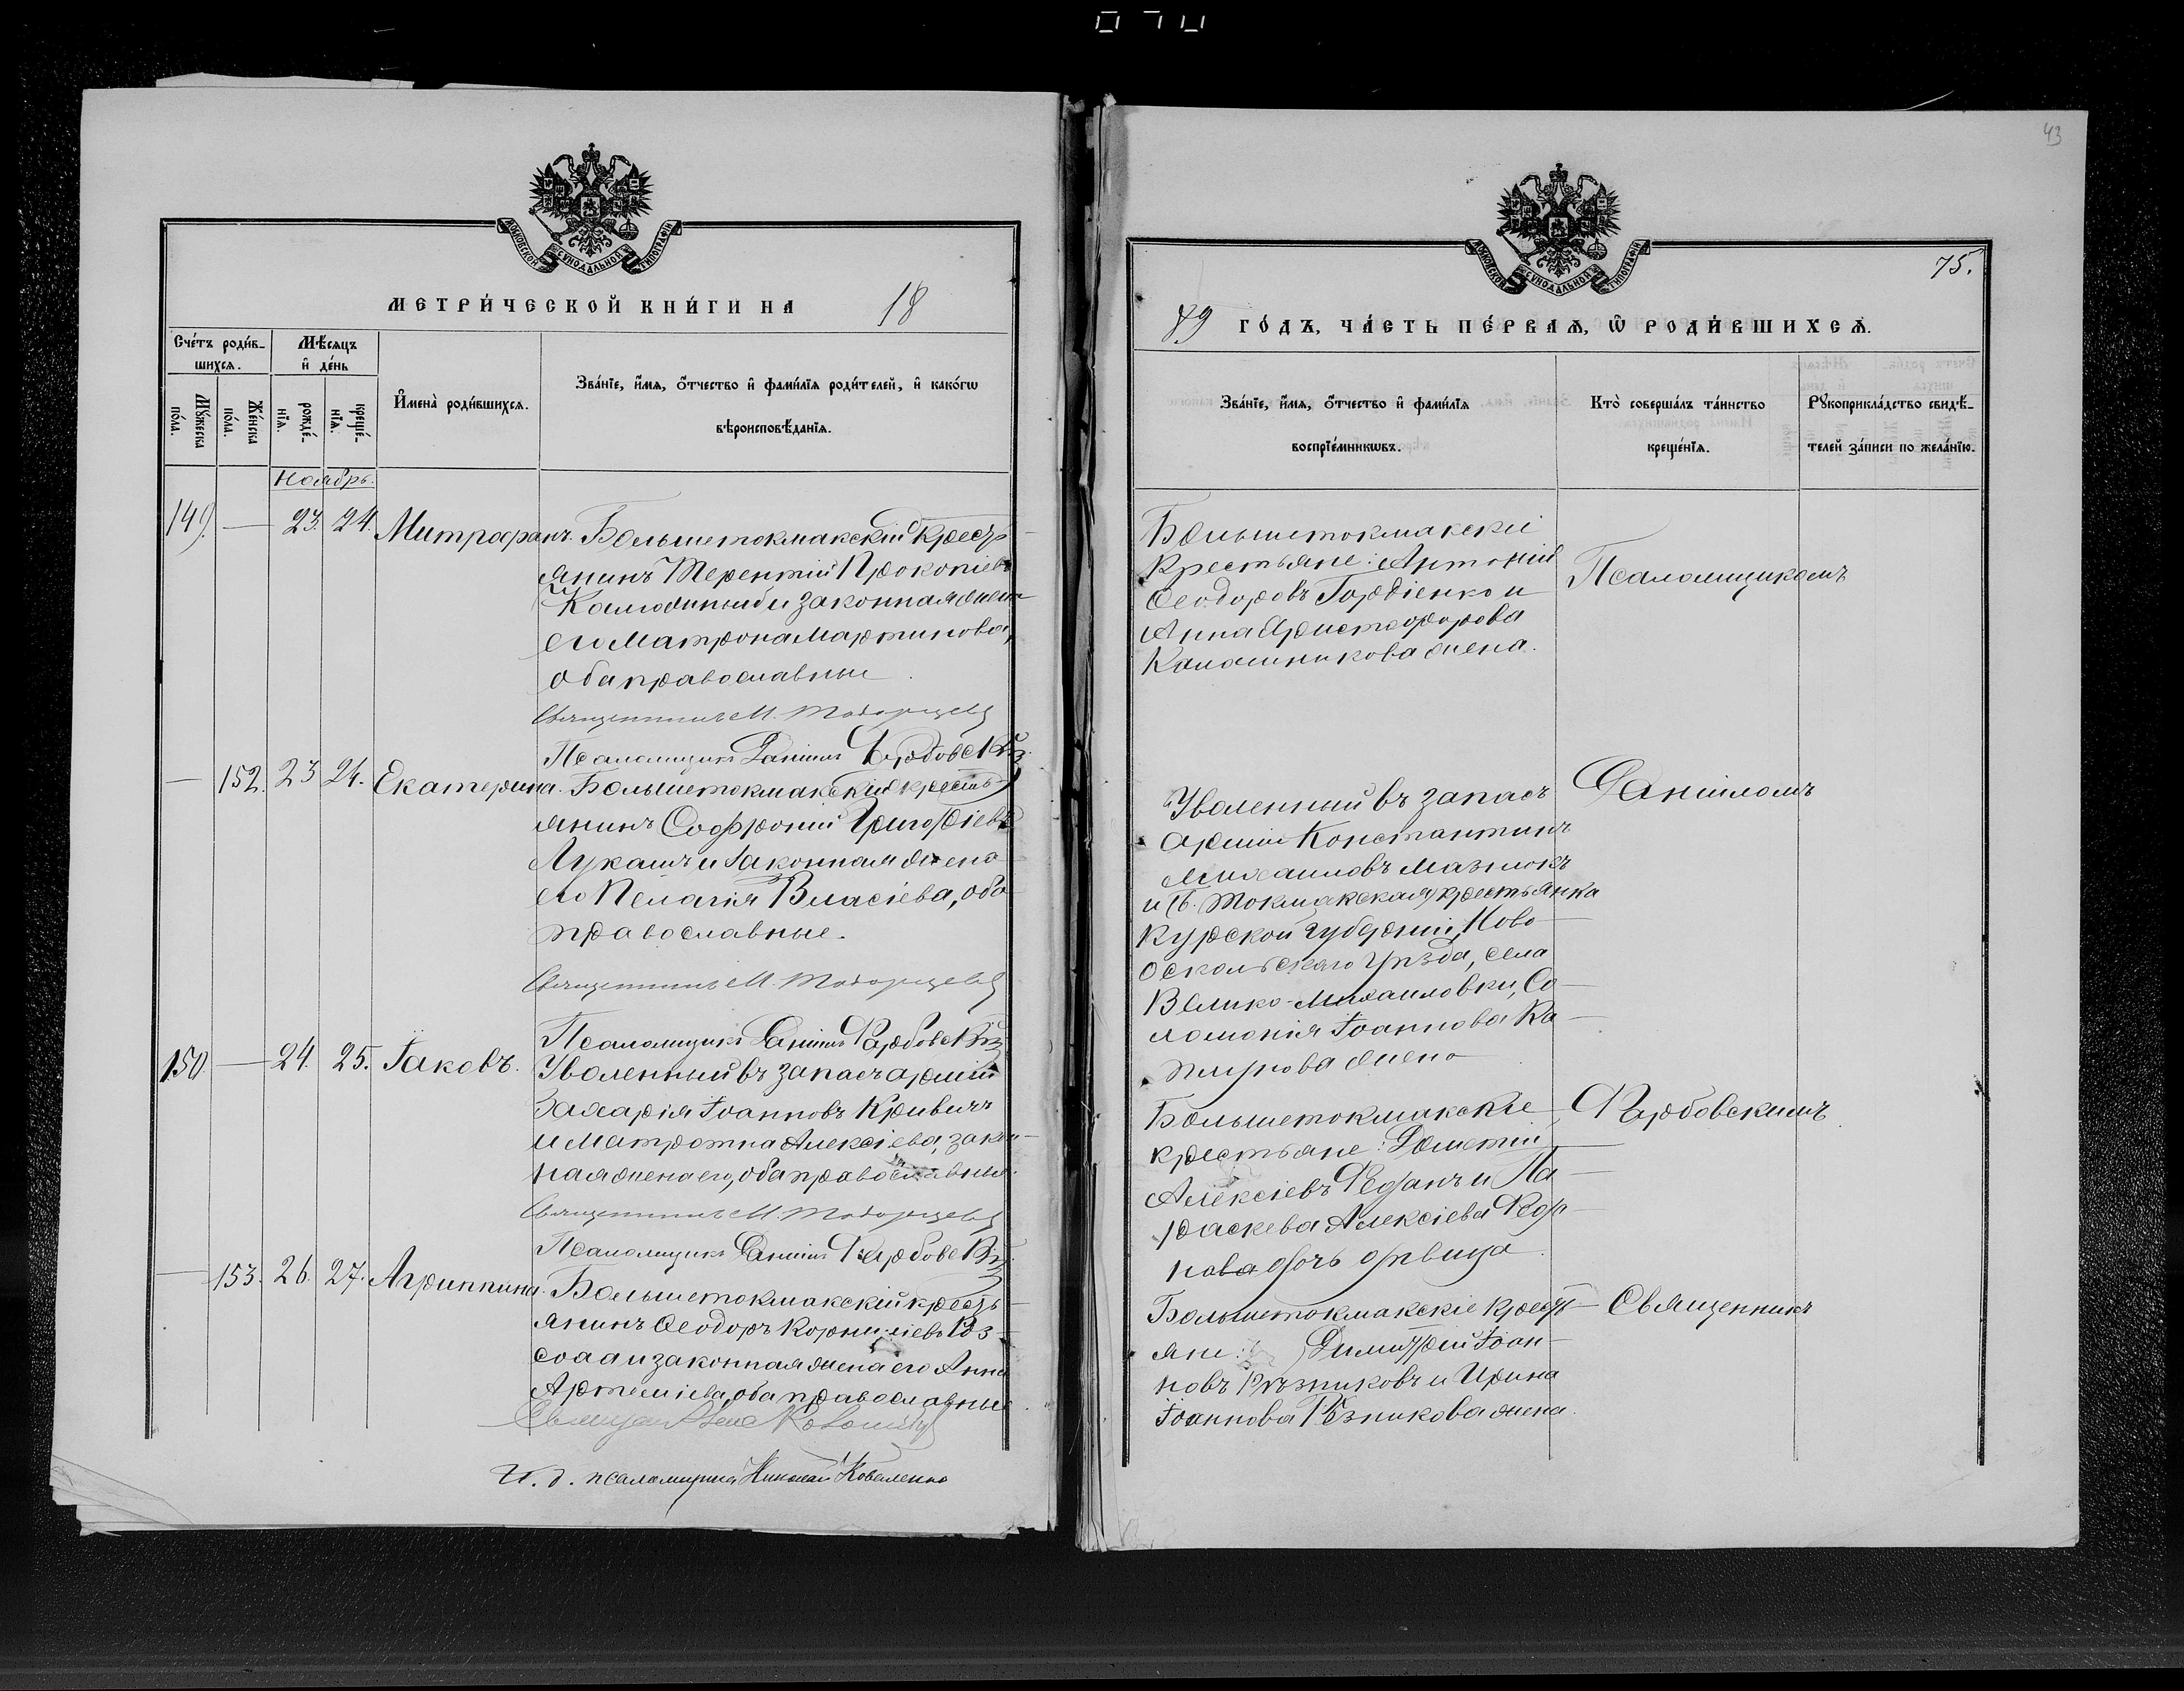 43
МОСКОВСКОЙ СѴНОДАЛЬНОЙ ТИПОГРАФІИ
МЕТРИ́ЧЕСКОЙ КНИ́ГИ НА 18
Сче́тъ роди́в-
шихсѧ.
Мѣ́сѧцъ
и҆ де́нь
Мꙋ́жеска
по́ла.
Же́нска
по́ла.
рожде́-
нїѧ.
креще́-
нїѧ.
И҆мена̀ роди́вшихсѧ.
Зва́нїе, и҆́мѧ, ѻ҆́тчество и҆ фами́лїѧ роди́телей, и҆ како́гѡ
вѣроисповѣ́данїѧ.
Ноябрь.
149. — 23. 24. Митрофанъ. Большетокмакскій кресть-
янинъ Терентій Прокопіевъ
и законная жена
его Матрона Мартинова,
оба православные
Священникъ М.
Псаломщикъ Даніилъ Фарбовскій
— 152. 23 24. Екатерина. Большетокмакскій кресть-
янинъ Софроній Григоріевъ
Лукашъ и законная жена
его Пелагія Власіева, оба
православные.
Священникъ М.
Псаломщикъ Даніилъ Фарбовскій
150 — 24. 25. Іаковъ. Уволенный въ запасъ арміи
Захарія Іоанновъ Кривичъ
и Матрона Алексіева, закон-
ная жена его, оба православные.
Священникъ М.
Псаломщикъ Даніилъ Фарбовскій
— 153. 26. 27. Агриппина. Большетокмакскій кресть-
янинъ Ѳеодоръ Корниліевъ
и законная жена его Анна
Артеміева, оба православные.
И. д. псаломщика Николай Коваленко
МОСКОВСКОЙ СѴНОДАЛЬНОЙ ТИПОГРАФІИ
75.
89 ГО́ДЪ, ЧА́СТЬ ПЕ́РВАѦ, Ѽ РОДИ́ВШИХСѦ.
Зва́нїе, и҆́мѧ, ѻ҆́тчество и҆ фами́лїѧ
воспрїе́мникѡвъ.
Кто̀ соверша́лъ та́инство
креще́нїѧ.
Рꙋкоприкла́дство свидѣ́-
телей за́писи по жела́нїю.
Большетокмакскіе
крестьяне: Антоній
Ѳеодоровъ Гордіенко и
Анна Христофорова
Калашникова жена.
Псаломщикомъ
Уволенный въ запасъ
арміи Константинъ
Михаиловъ Мазнюкъ
и Б. Токмакская крестьянка
Курской губерніи, Ново-
оскольскаго уѣзда, села
Велико-Михаиловки, Со-
ломонія Іоаннова
жена
Даніиломъ
Большетокмакскіе
крестьяне: Дометій
Алексіевъ Редзанъ и Па-
раскева Алексіева
дочь дѣвица
Фарбовскимъ.
Большетокмакскіе кресть-
яне: Димитрій Іоан-
новъ Рѣзниковъ и Ирина
Іоаннова Рѣзникова жена.
Священникъ